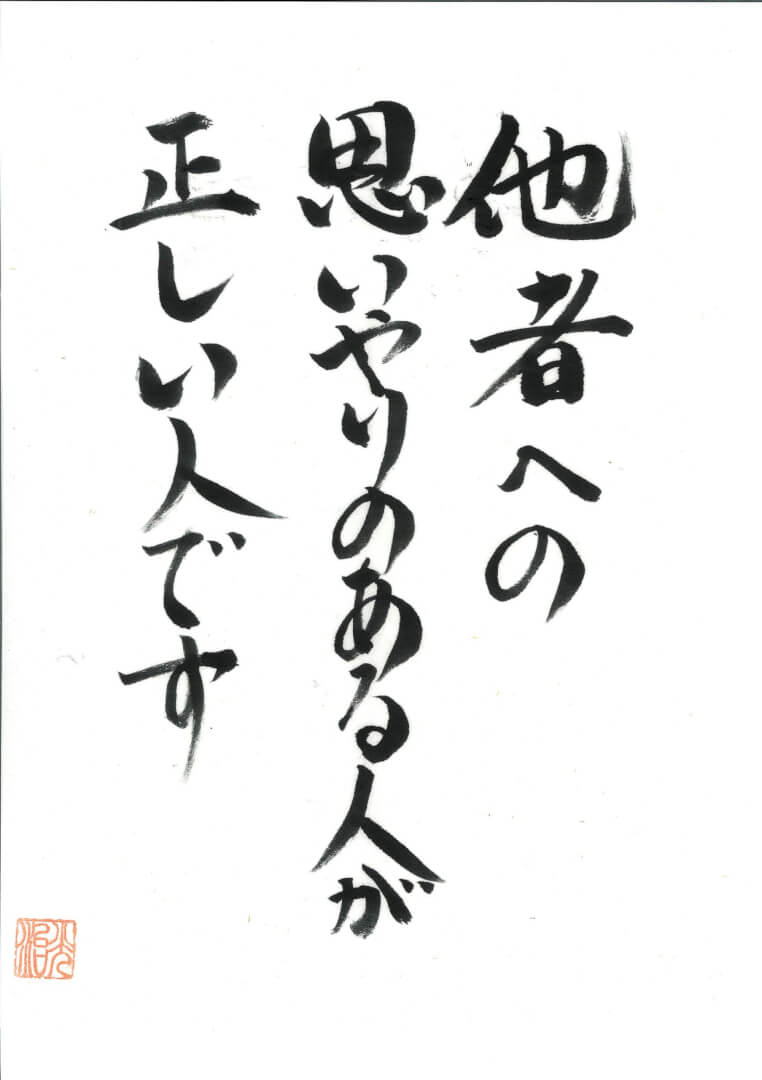 他者への
思いやりのある人が
正しい人です